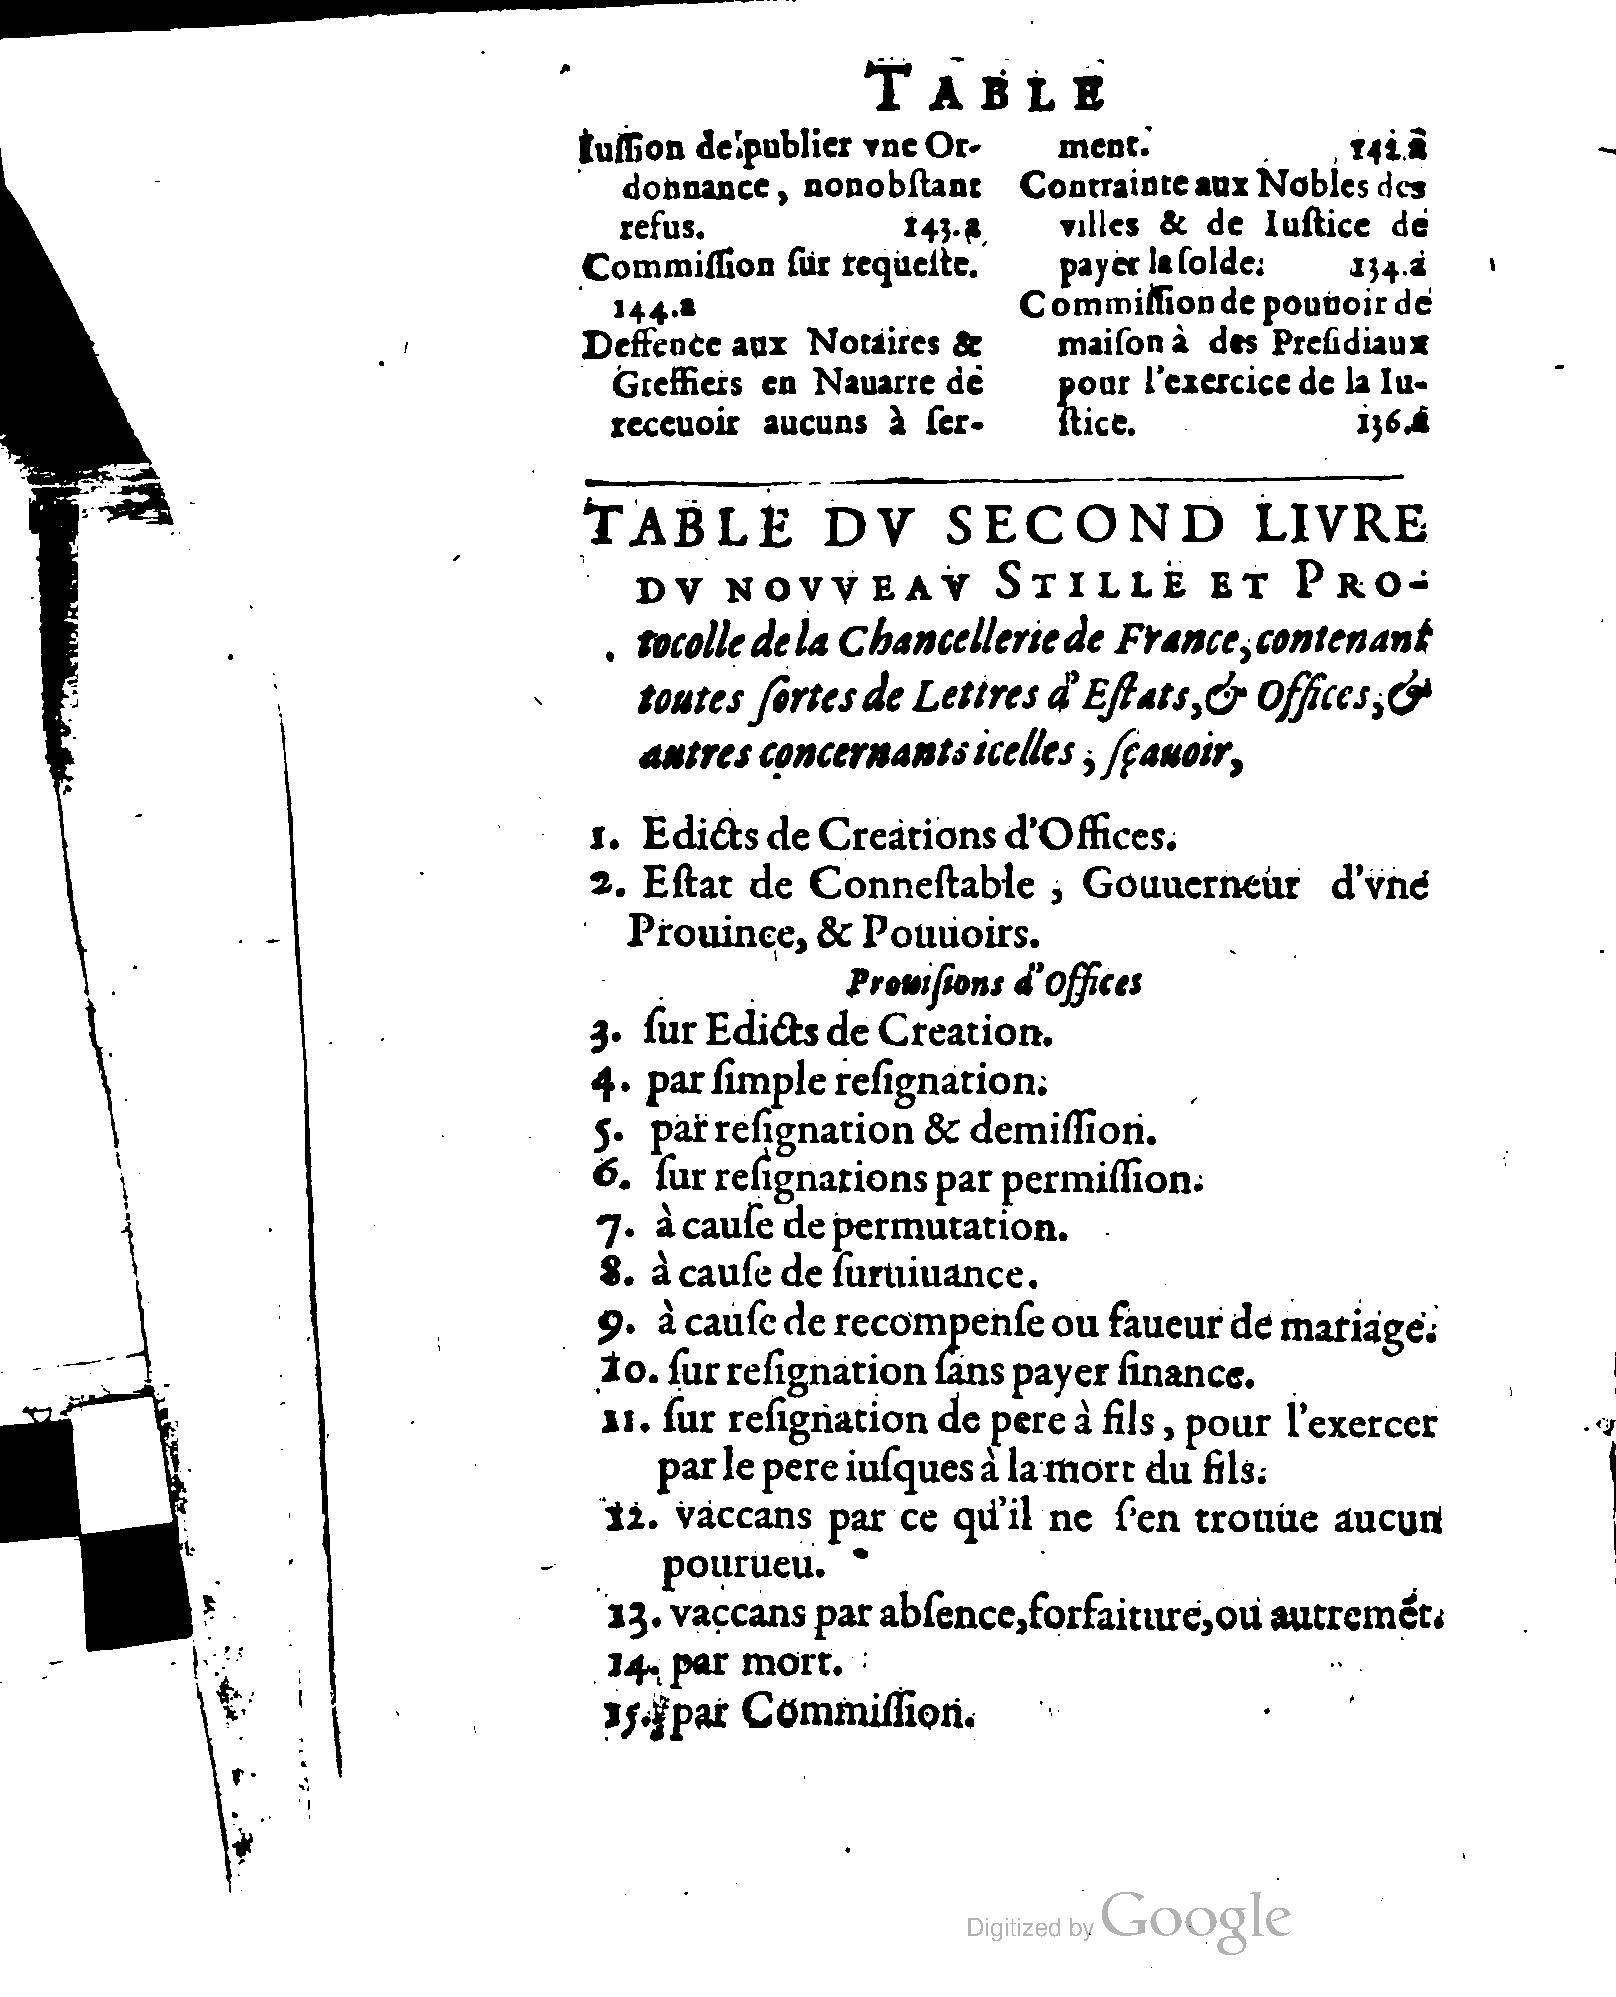 TABLE
Iuſſion de publier vne Or-
donnance, nonobſtant
refus. 143.a
Commiſſion ſur requeſte.
144.a
Deffence aux Notaires &
Greffiers en Nauarre de
receuoir aucuns à ſer-
ment. 142.a
Contrainte aux Nobles des
villes & de Iuſtice de
payer la ſolde. 134.a
Commiſſion de pouuoir de
maiſon à des Preſidiaux
pour l'exercice de la Iu-
ſtice. 136.a
TABLE DV SECOND LIVRE
DV NOVVEAV STILLE ET PRO-
tocolle de la Chancellerie de France, contenant
toutes ſortes de Lettres d'Eſtats, & Offices, &
autres concernants icelles, ſçauoir,
1. Edicts de Creations d'Offices.
2. Eſtat de Conneſtable, Gouuerneur d'vne
Prouince, & Pouuoirs.
Prouiſions d'Offices
3. ſur Edicts de Creation.
4. par ſimple reſignation.
5. par reſignation & demiſſion.
6. ſur reſignations par permiſſion.
7. à cauſe de permutation.
8. à cauſe de ſuruiuance.
9. à cauſe de recompenſe ou faueur de mariage.
10. ſur reſignation ſans payer finance.
11. ſur reſignation de pere à fils, pour l'exercer
par le pere iuſques à la mort du fils.
12. vaccans par ce qu'il ne ſ'en trouue aucun
pourueu.
13. vaccans par abſence, forfaiture, ou autremẽt.
14. par mort.
15. par Commiſſion.
Digitized by Google